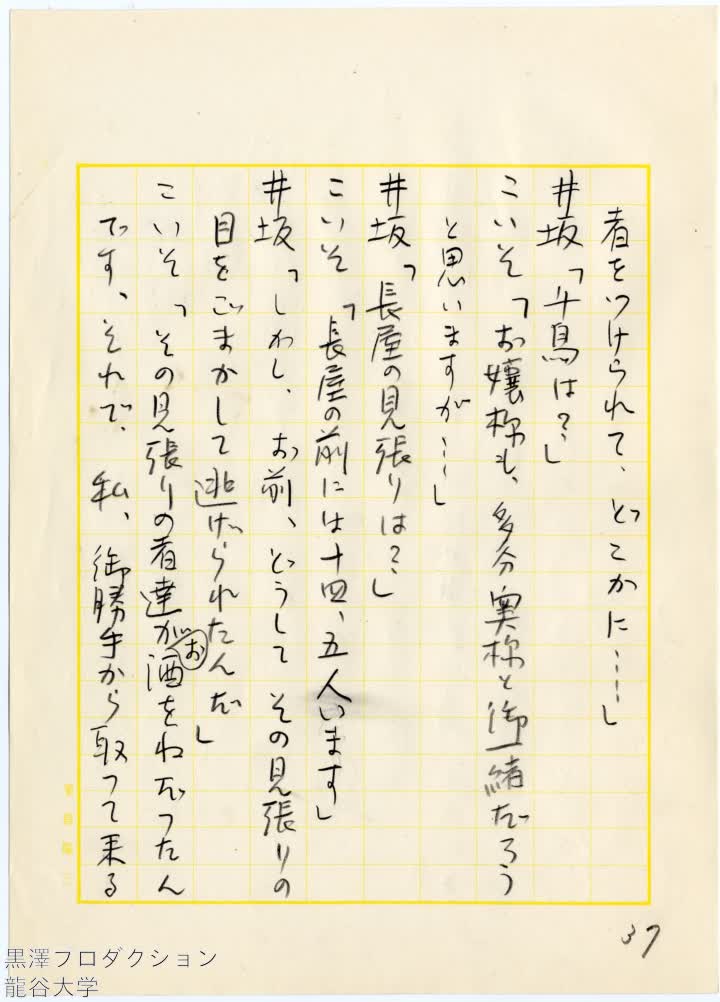 者をつけられて、どこかに……」
井坂「千鳥は？」
こいそ「お嬢様も、多分奥様と御一緒だろう
と思いますが……」
井坂「長屋の見張りは？」
こいそ「長屋の前には十四、五人います」
井坂「しかし、お前、どうしてその見張りの
目をごまかして逃げられたんだ」
こいそ「その見張りの者達がお酒をねだつたん
です、それで、私、御勝手から取つて来る
37
黒澤プロダクション
龍谷大学